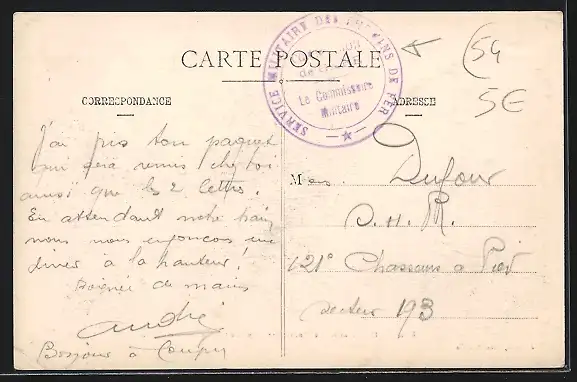 CARTE POSTALE
SERVICE MILITAIRE DES CHEMINS DE FER
Le Commissaire
Militaire
54
5€
CORRESPONDANCE
ADRESSE
J'ai pris ton paquet
qui sera remis chez toi
ainsi que les 2 lettres.
En attendant notre train
nous nous enfonçons un
diner à la hauteur!
Poignée de mains
André
Bonjour à
M Dufour
121e Chasseurs à Pied
secteur 193